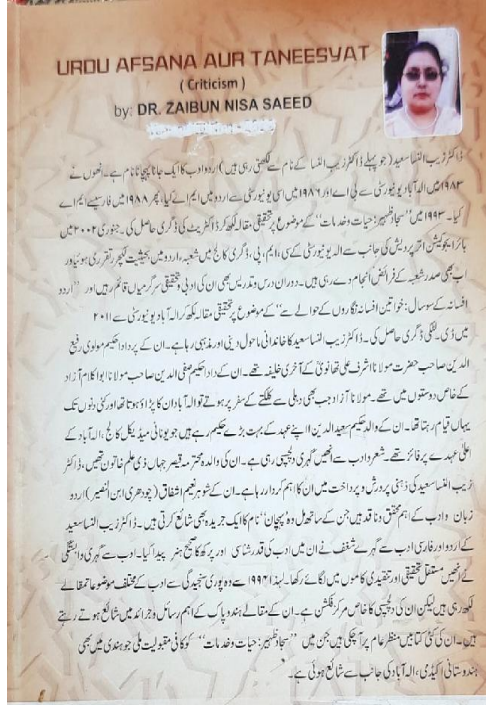 URDU AFSANA AUR TANEESYAT
( Criticism )
by: DR. ZAIBUN NISA SAEED
ڈاکٹر زیب النسا سعید (جو پہلے ڈاکٹر زیب النسا کے نام سے لکھتی رہی ہیں) اردو ادب کا ایک جانا پہچانا نام ہے۔ انھوں نے
۱۹۸۳ میں الہ آباد یونیورسٹی سے بی اے اور ۱۹۸۶ میں اسی یونیورسٹی سے اردو میں ایم اے کیا، پھر ۱۹۸۸ میں فارسی سے ایم اے
کیا۔ ۱۹۹۳ میں ''سجاد ظہیر: حیات و خدمات'' کے موضوع پر تحقیقی مقالہ لکھ کر ڈاکٹریٹ کی ڈگری حاصل کی۔ جنوری ۲۰۰۲ میں
ہائر ایجوکیشن اتر پردیش کی جانب سے الہ یونیورسٹی کے سی، ایم، پی، ڈگری کالج میں شعبہ، اردو میں بحیثیت لکچرر تقرری ہوئی اور
اب بھی صدر شعبہ کے فرائض انجام دے رہی ہیں۔ دوران درس و تدریس بھی ان کی ادبی و تحقیقی سرگرمیاں قائم رہیں اور ''اردو
افسانہ کے سو سال: خواتین افسانہ نگاروں کے حوالے سے'' کے موضوع پر تحقیقی مقالہ لکھ کر الہ آباد یونیورسٹی سے ۲۰۱۱
میں ڈی۔ لٹ کی ڈگری حاصل کی۔ ڈاکٹر زیب النسا سعید کا خاندانی ماحول دینی اور مذہبی رہا ہے۔ ان کے پردادا حکیم مولوی رفیع
الدین صاحب حضرت مولانا اشرف علی تھانویؒ کے آخری خلیفہ تھے۔ ان کے دادا حکیم صفی الدین صاحب مولانا ابوالکلام آزاد
کے خاص دوستوں میں تھے۔ مولانا آزاد جب بھی دہلی سے کلکتے کے سفر پر ہوتے تو الہ آباد ان کا پڑاؤ ہوتا تھا اور کئی دنوں تک
یہاں قیام رہتا تھا۔ ان کے والد حکیم سعید الدین اپنے عہد کے بہت بڑے حکیم رہے ہیں جو یونانی میڈیکل کالج، الہ آباد کے
اعلیٰ عہدے پر فائز تھے۔ شعر و ادب سے انھیں گہری دلچسپی رہی ہے۔ ان کی والدہ محترمہ قیصر جہاں ذی علم خاتون تھیں، ڈاکٹر
زیب النسا سعید کی ذہنی پرورش و پرداخت میں ان کا اہم کردار رہا ہے۔ ان کے شوہر نعیم اشفاق (چودھری ابن النصیر) اردو
زبان و ادب کے اہم محقق و ناقد ہیں جن کے ساتھ مل وہ ''پہچان'' نام کا ایک جریدہ بھی شائع کرتی ہیں۔ ڈاکٹر زیب النسا سعید
کے اردو اور فارسی ادب سے گہرے شغف نے ان میں ادب کی قدر شناسی اور پرکھ کا صحیح ہنر پیدا کیا۔ ادب سے گہری وابستگی
نے انھیں مستقل تحقیقی اور تنقیدی کاموں میں لگائے رکھا۔ لہٰذا ۱۹۹۲ سے وہ پوری سنجیدگی سے ادب کے مختلف موضوعات مقالے
لکھ رہی ہیں لیکن ان کی دلچسپی کا خاص مرکز فکشن ہے۔ ان کے مقالے ہند و پاک کے اہم رسائل و جرائد میں شائع ہوتے رہتے
ہیں۔ ان کی کئی کتابیں منظر عام پر آ چکی ہیں جن میں ''سجاد ظہیر: حیات و خدمات'' کو کافی مقبولیت ملی جو ہندی میں بھی
ہندوستانی اکیڈمی، الہ آباد کی جانب سے شائع ہوئی ہے۔